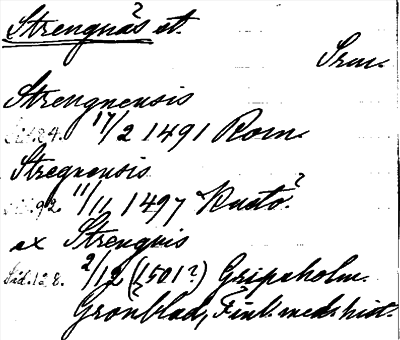 Strengnäs st.
Srm.
Strengnensis
Sid. 84. 17/2 1491 Rom.
Stregnensis
Sid. 92. 11/11 1497 Kustö?
ex Strenguis
Sid. 128. 2/12 (1501?) Gripsholm.
Grönblad, Finl. medh. hist.